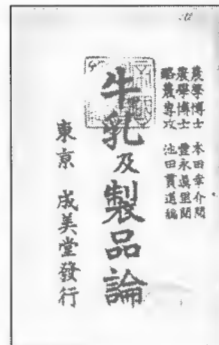 農學博士 本田幸介閲
農學博士 豊永眞里閲
酪農專攻 池田貫道編
牛乳及製品論
東京 成美堂發行